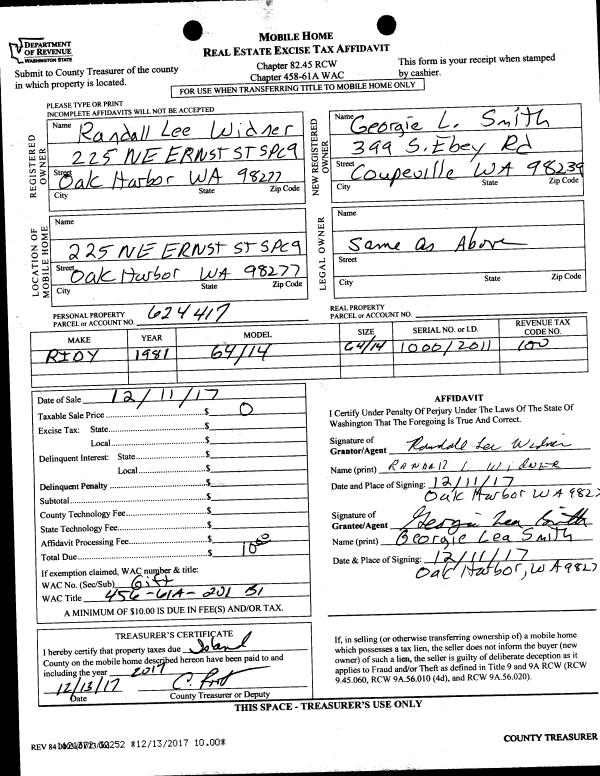 DEPARTMENT
OF REVENUE
WASHINGTON STATE
MOBILE HOME
REAL ESTATE EXCISE TAX AFFIDAVIT
Submit to County Treasurer of the county
in which property is located.
Chapter 82.45 RCW
Chapter 458-61A WAC
This form is your receipt when stamped
by cashier.
FOR USE WHEN TRANSFERRING TITLE TO MOBILE HOME ONLY
PLEASE TYPE OR PRINT
INCOMPLETE AFFIDAVITS WILL NOT BE ACCEPTED
REGISTERED
OWNER
Name Randall Lee Widner
225 NE ERNST ST SPC9
Street Oak Harbor WA 98277
City State Zip Code
NEW REGISTERED
OWNER
Name Georgie L. Smith
399 S. Ebey Rd
Street Coupeville WA 98239
City State Zip Code
LOCATION OF
MOBILE HOME
Name
225 NE ERNST ST SPC9
Street Oak Harbor WA 98277
City State Zip Code
LEGAL OWNER
Name
Same as Above
Street
City State Zip Code
PERSONAL PROPERTY
PARCEL or ACCOUNT NO. 624417
REAL PROPERTY
PARCEL or ACCOUNT NO.
MAKE YEAR MODEL SIZE SERIAL NO. or I.D. REVENUE TAX CODE NO.
1981 64/14 64/14 1000/2011 100
Date of Sale 12/11/17
Taxable Sale Price $ 0
Excise Tax: State $
Local $
Delinquent Interest: State $
Local $
Delinquent Penalty $
Subtotal $
County Technology Fee $
State Technology Fee $
Affidavit Processing Fee $
Total Due $ 10 00
If exemption claimed, WAC number & title:
WAC No. (Sec/Sub) Gift
WAC Title 456-61A-201 B1
A MINIMUM OF $10.00 IS DUE IN FEE(S) AND/OR TAX.
AFFIDAVIT
I Certify Under Penalty Of Perjury Under The Laws Of The State Of
Washington That The Foregoing Is True And Correct.
Signature of
Grantor/Agent Randall Lee Widner
Name (print) RANDALL L WIDNER
Date and Place of Signing: 12/11/17
Oak Harbor WA 982
Signature of
Grantee/Agent Georgie Lea Smith
Name (print) Georgie Lea Smith
Date & Place of Signing: 12/11/17
Oak Harbor, WA 982
TREASURER'S CERTIFICATE
I hereby certify that property taxes due Island
County on the mobile home described hereon have been paid to and
including the year 2017
12/13/17
Date County Treasurer or Deputy
If, in selling (or otherwise transferring ownership of) a mobile home
which possesses a tax lien, the seller does not inform the buyer (new
owner) of such a lien, the seller is guilty of deliberate deception as it
applies to Fraud and/or Theft as defined in Title 9 and 9A RCW (RCW
9.45.060, RCW 9A.56.010 (4d), and RCW 9A.56.020).
THIS SPACE - TREASURER'S USE ONLY
REV 84 *12/13/2017 10.00*
COUNTY TREASURER